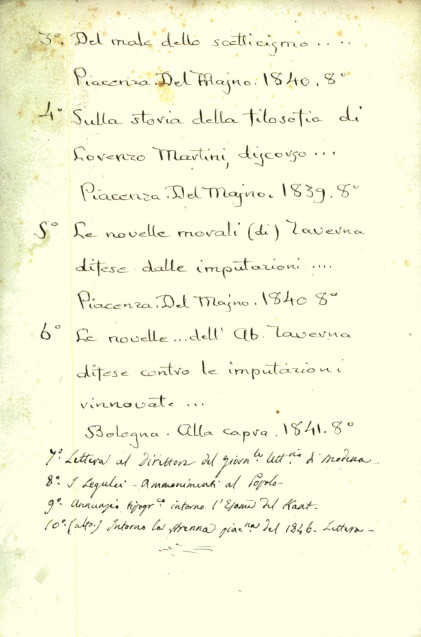 3º. Del male dello scetticismo ....
Piacenza. Del Majno. 1840. 8º
4º Sulla storia della filosofia di
Lorenzo Martini, discorso ...
Piacenza. Del Majno. 1839. 8º
5º Le novelle morali (di) Taverna
difese dalle imputazioni ....
Piacenza. Del Majno. 1840 8º
6º Le novelle ... dell' Ab. Taverna
difese contro le imputazioni
rinnovate ...
Bologna. Alla capra. 1841. 8º
7º. Lettera al Direttore del giorn.le lett.rio di Modena -
8º. I Legulei - Ammonimenti al Popolo -
9º. Annunzio tipogr.co intorno l'Esame del Kant.
10º. (alto.) Intorno la Strenna piac.na del 1846. Lettera -